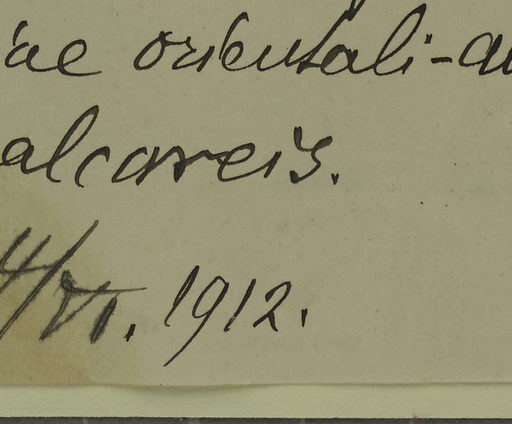 iae orientali-au
alcareis.
4/VI. 1912.